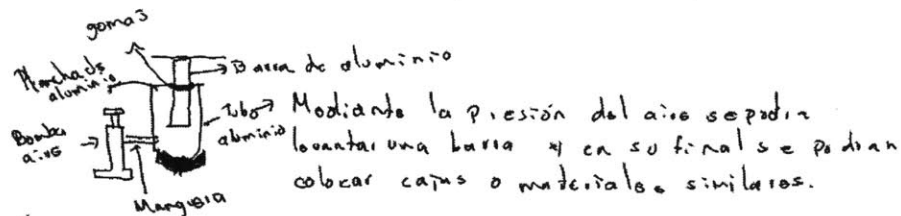 gomas
Plancha de
aluminio
Barra de aluminio
Bomba
aire
Tubo
aluminio
Manguera
Mediante la presión del aire se podra
levantar una barra y en su final se podran
colocar cajas o materiales similares.